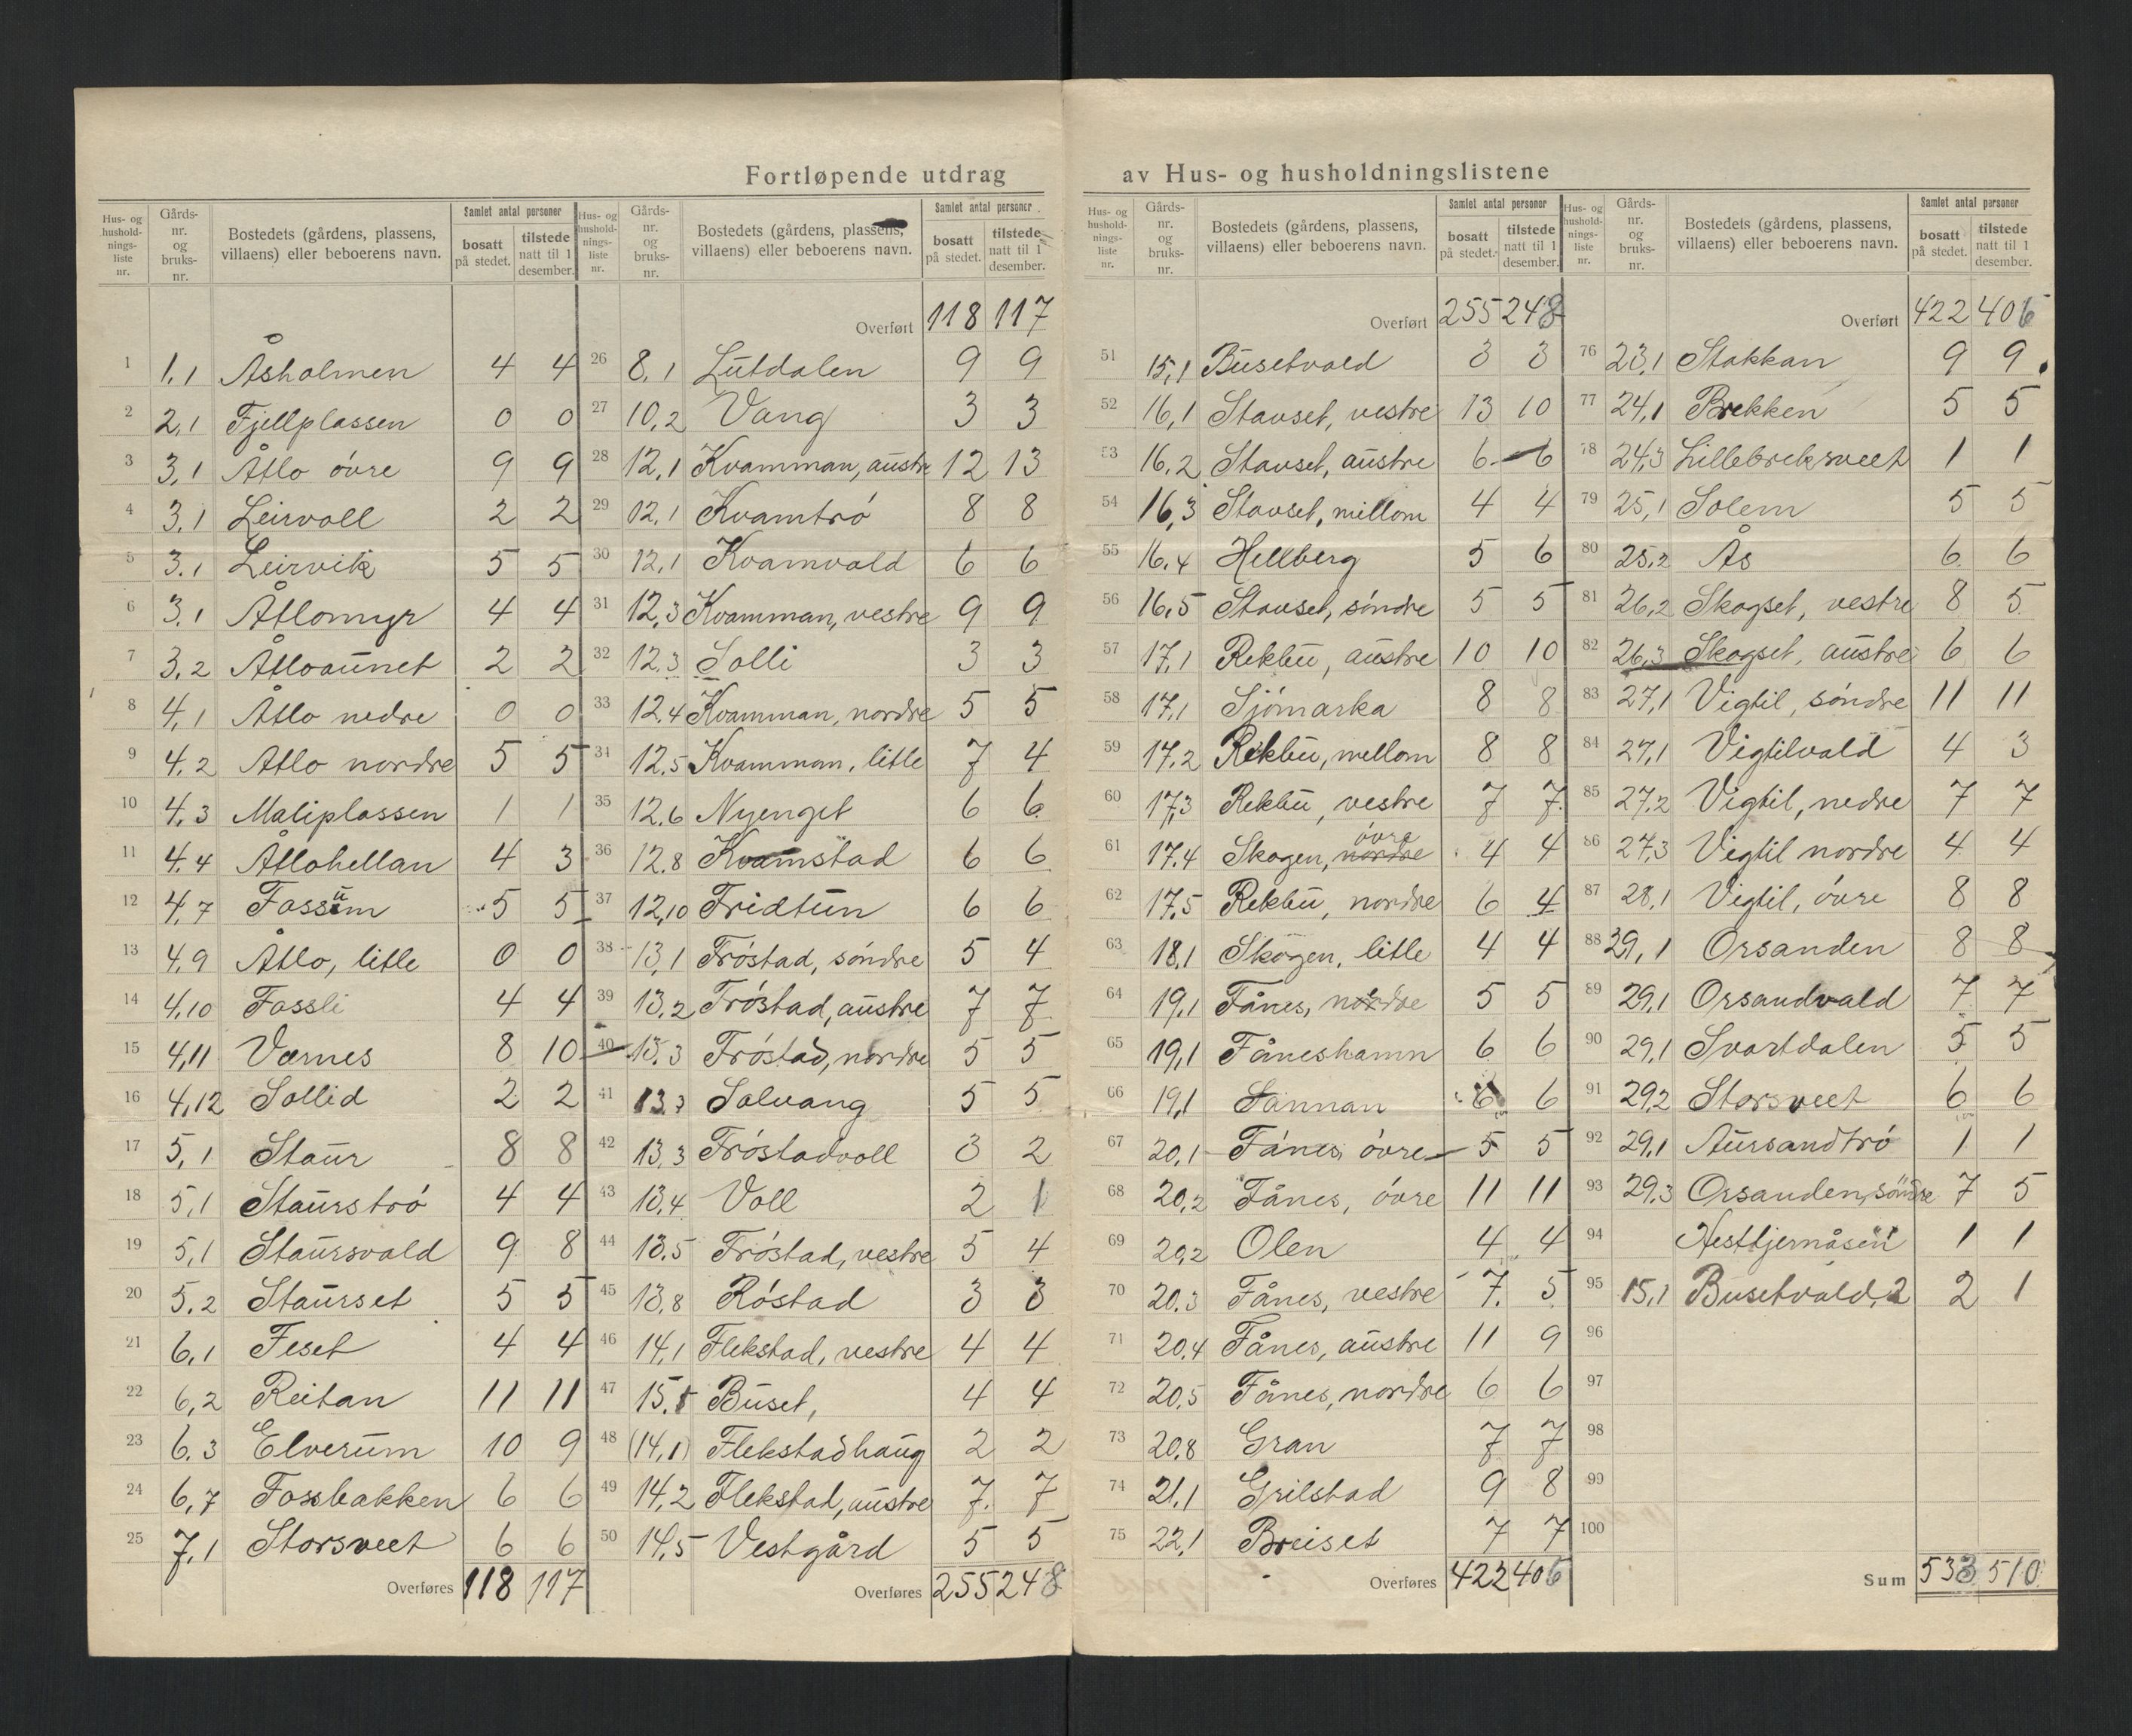 Fortløpende utdrag av Hus- og husholdningslistene
Hus- og hushold-nings-liste nr. Gårds-nr. og bruks-nr. Bostedets (gårdens, plassens, villaens) eller beboerens navn. Samlet antal personer bosatt på stedet. tilstede natt til 1 desember.
1 1,1 Åsholmen 4 4
2 2,1 Fjellplassen 0 0
3 3,1 Åtlo óvre 9 9
4 3,1 Leirvoll 2 2
5 3.1 Leirvik 5 5
6 3.1 Åtlomyr 4 4
7 3.2 Åtloaūnet 2 2
8 4,1 Åtlo nedre 0 0
9 4.2 Åtlo nordre 5 5
10 4.3 Maliplassen 1 1
11 4.4 Åtlohellan 4 3
12 4,7 Fossūm 5 5
13 4.9 Åtlo, litle 0 0
14 4,10 Fossli 4 4
15 4,11 Værnes 8 10
16 4,12 Sollid 2 2
17 5,1 Staūr 8 8
18 5,1 Staūrstró 4 4
19 5,1 Staūrsvald 9 8
20 5.2 Staūrset 5 5
21 6,1 Feset 4 4
22 6,2 Reitan 11 11
23 6.3 Elverūm 10 9
24 6,7 Fossbakken 6 6
25 7,1 Storsveet 6 6
Overføres 118 117
Hus- og hushold-nings-liste nr. Gårds-nr. og bruks-nr. Bostedets (gårdens, plassens, villaens) eller beboerens navn. Samlet antal personer bosatt på stedet. tilstede natt til 1 desember.
Overført 118 117
26 8,1 Lūtdalen 9 9
27 10,2 Vang 3 3
28 12,1 Kvamman, aūstre 12 13
29 12,1 Kvamtró 8 8
30 12,1 Kvamvald 6 6
31 12,3 Kvamman, vestre 9 9
32 12.3 Solli 3 3
33 12.4 Kvamman, nordre 5 5
34 12.5 Kvamman, litle 7 4
35 12.6 Nyenget 6 6
36 12.8 Kvamstad 6 6
37 12,10 Fridtūn 6 6
38 13,1 Fróstad, sóndre 5 4
39 13.2 Fróstad, aūstre 7 7
40 13.3 Fróstad, nordre 5 5
41 13.3 Solvang 5 5
42 13.3 Fróstadvoll 3 2
43 13.4 Voll 2 1
44 13.5 Fróstad, vestre 5 4
45 13.8 Róstad 3 3
46 14,1 Flekstad, vestre 4 4
47 15.1 Būset, 4 4
48 (14,1) Flekstadhaūg 2 2
49 14,2 Flekstad, aūstre 7. 7
50 14,5 Vestgård 5 5
Overføres 255 248
Hus- og hushold-nings-liste nr. Gårds-nr. og bruks-nr. Bostedets (gårdens, plassens, villaens) eller beboerens navn. Samlet antal personer bosatt på stedet. tilstede natt til 1 desember.
Overført 255 248
51 15,1 Būsetvald 3 3
52 16,1 Stavset, vestre 13 10
53 16.2 Stavset, aūstre 6 6
54 16,3 Stavset, millom 4 4
55 16.4 Hellberg 5 6
56 16,5 Stavset, sóndre 5 5
57 17,1 Rekbū, aūstre 10 10
58 17,1 Sjómarka 8 8
59 17,2 Rekbū, mellom 8 8
60 17,3 Rekbū, vestre 7 7
61 17.4 Skogen, nordre óvre 4 4
62 17.5 Rekbū, nordre 6 4
63 18,1 Skogen, litle 4 4
64 19,1 Fånes, nedre 5 5
65 19,1 Fåneshamn 6 6
66 19,1 Sannan 6 6
67 20,1 Fånes óvre 5 5
68 20,2 Fånes, óvre 11 11
69 20,2 Olen 4 4
70 20.3 Fånes, vestre 7. 5
71 20.4 Fånes, aūstre 11 9
72 20.5 Fånes, nordre 6 6
73 20.8 Gran 7 7
74 21,1 Grilstad 9 8
75 22,1 Breiset 7 7
Overføres 422 406
Hus- og hushold-nings-liste nr. Gårds-nr. og bruks-nr. Bostedets (gårdens, plassens, villaens) eller beboerens navn. Samlet antal personer bosatt på stedet. tilstede natt til 1 desember.
Overført 422 406
76 23,1 Stokkan 9 9
77 24,1 Brekken 5 5
78 24.3 Lillebreksveet 1 1
79 25,1 Solem 5 5
80 25.2 Ås 6 6
81 26,2 Skogset, vestre 8 5
82 26,3 Skogset, aūstre 6 6
83 27,1 Vigtil, sóndre 11 11
84 27,1 Vigtilvald 4 3
85 27,2 Vigtil, nedre 7 7
86 27,3 Vigtil nordre 4 4
87 28,1 Vigtil, óvre 8 8
88 29,1 Orsanden 8 8
89 29,1 Orsandvald 7 7
90 29,1 Svartdalen 5 5
91 29,2 Storsveet 6 6
92 29,1 Aūrsandtró 1 1
93 29.3 Orsanden, sóndre 7 5
94 Hesttjernåsen 1 1
95 15,1 Busetvald, 2 2 1
96
97
98
99
100
Sum 533 510